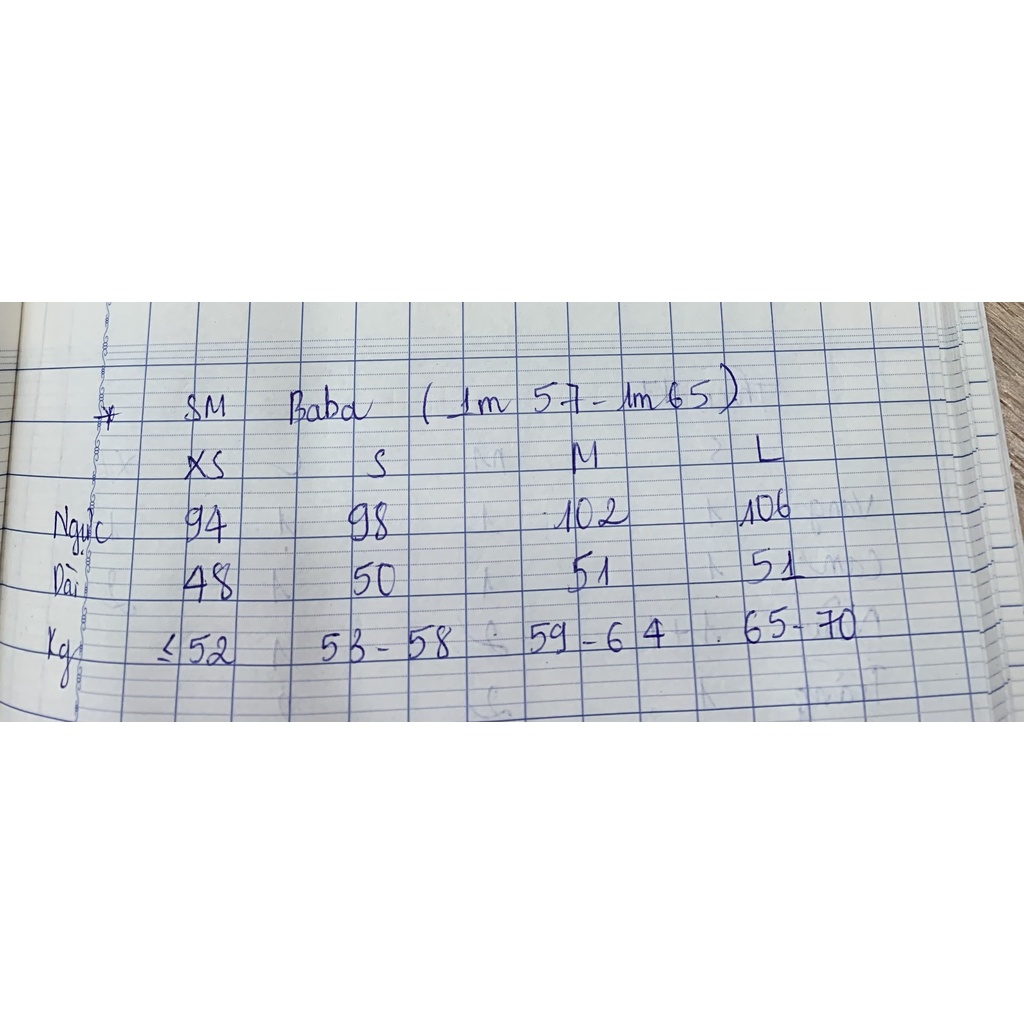 * SM Baba (1m 57 - 1m 65)
XS S M L
Ngực 94 98 102 106
Dài 48 50 51 51
Kg ≤ 52 53 - 58 59 - 64 65 - 70